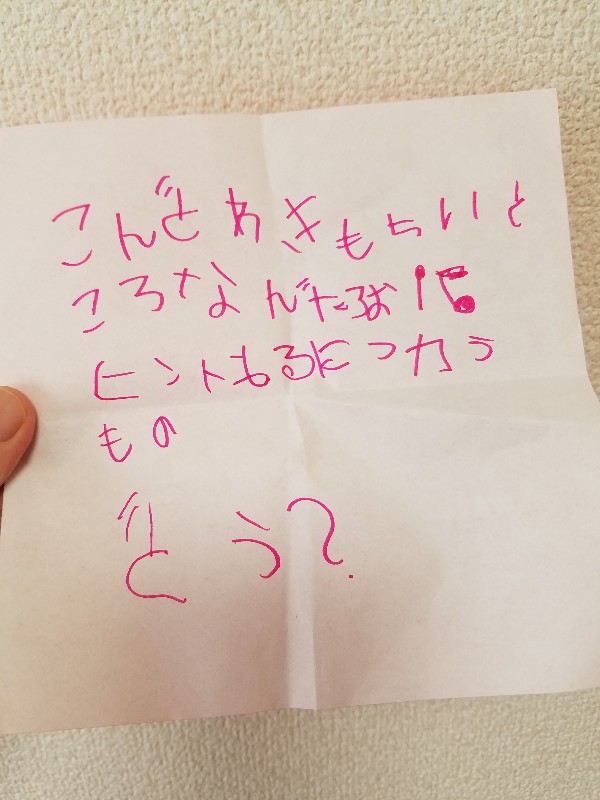 こんどわきもちいいと
ころなんだろお♫
ヒントよるにつかう
もの
どう?